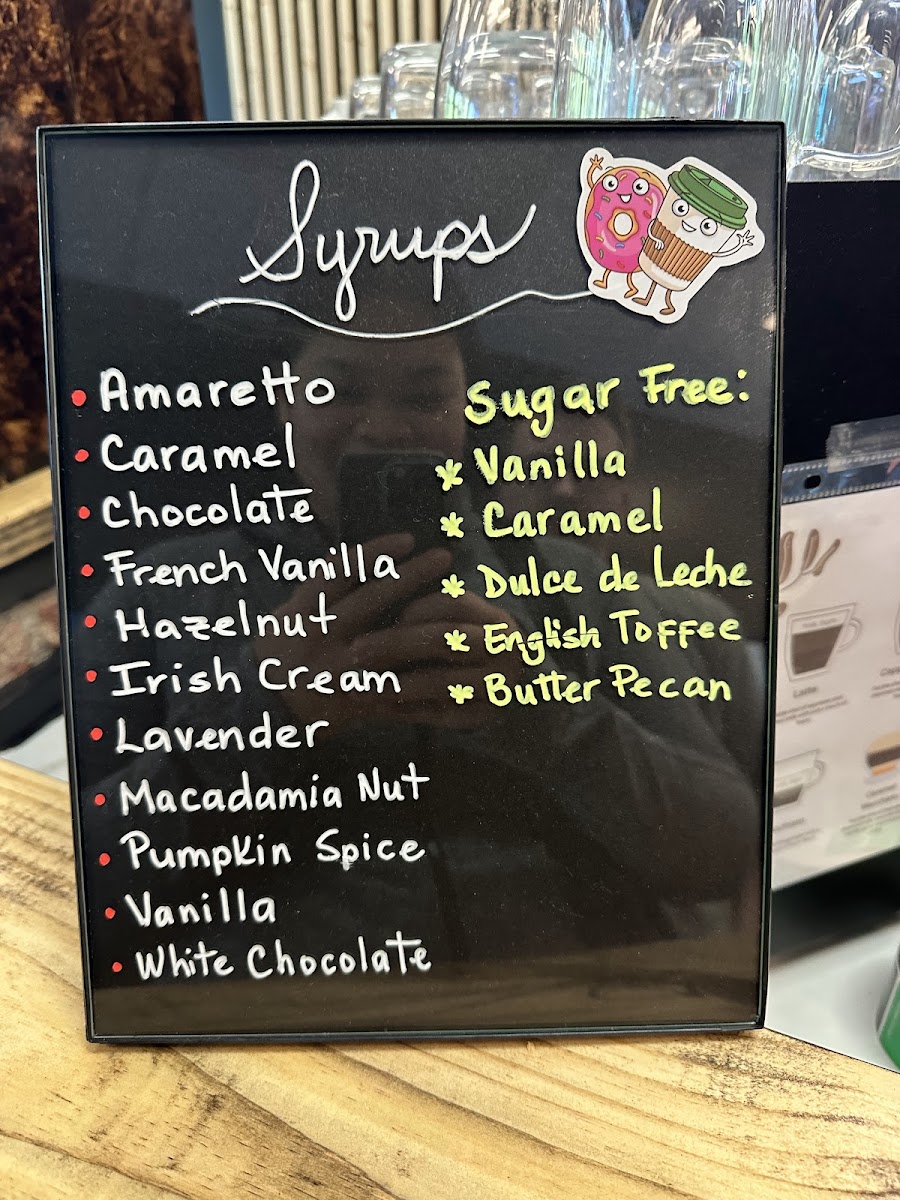 Syrups
• Amaretto
• Caramel
• Chocolate
• French Vanilla
• Hazelnut
• Irish Cream
• Lavender
• Macadamia Nut
• Pumpkin Spice
• Vanilla
• White Chocolate
Sugar Free:
* Vanilla
* Caramel
* Dulce de Leche
* English Toffee
* Butter Pecan
Latte